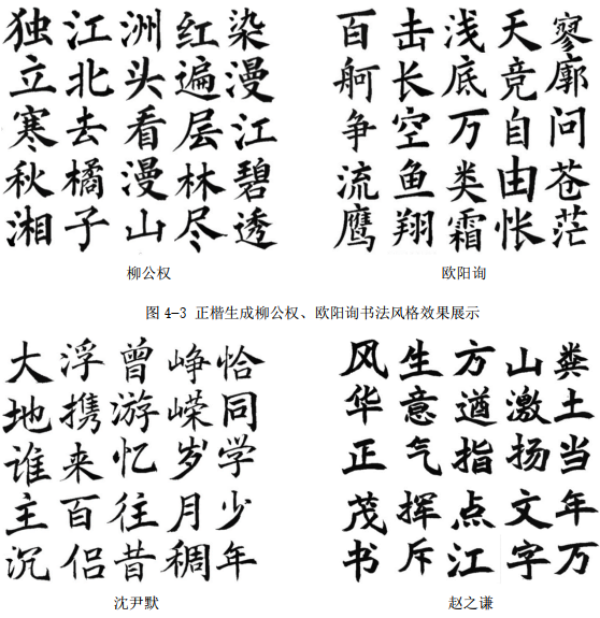 独立寒秋湘
江北去橘子
洲头看漫山
红遍层林尽
染漫江碧透
柳公权
百舸争流鹰
击长空鱼翔
浅底万类霜
天竞自由怅
寥廓问苍茫
欧阳询
图 4-3 正楷生成柳公权、欧阳询书法风格效果展示
大地谁主沉
浮携来百侣
曾游忆往昔
峥嵘岁月稠
恰同学少年
沈尹默
风华正茂书
生意气挥斥
方遒指点江
山激扬文字
粪土当年万
赵之谦